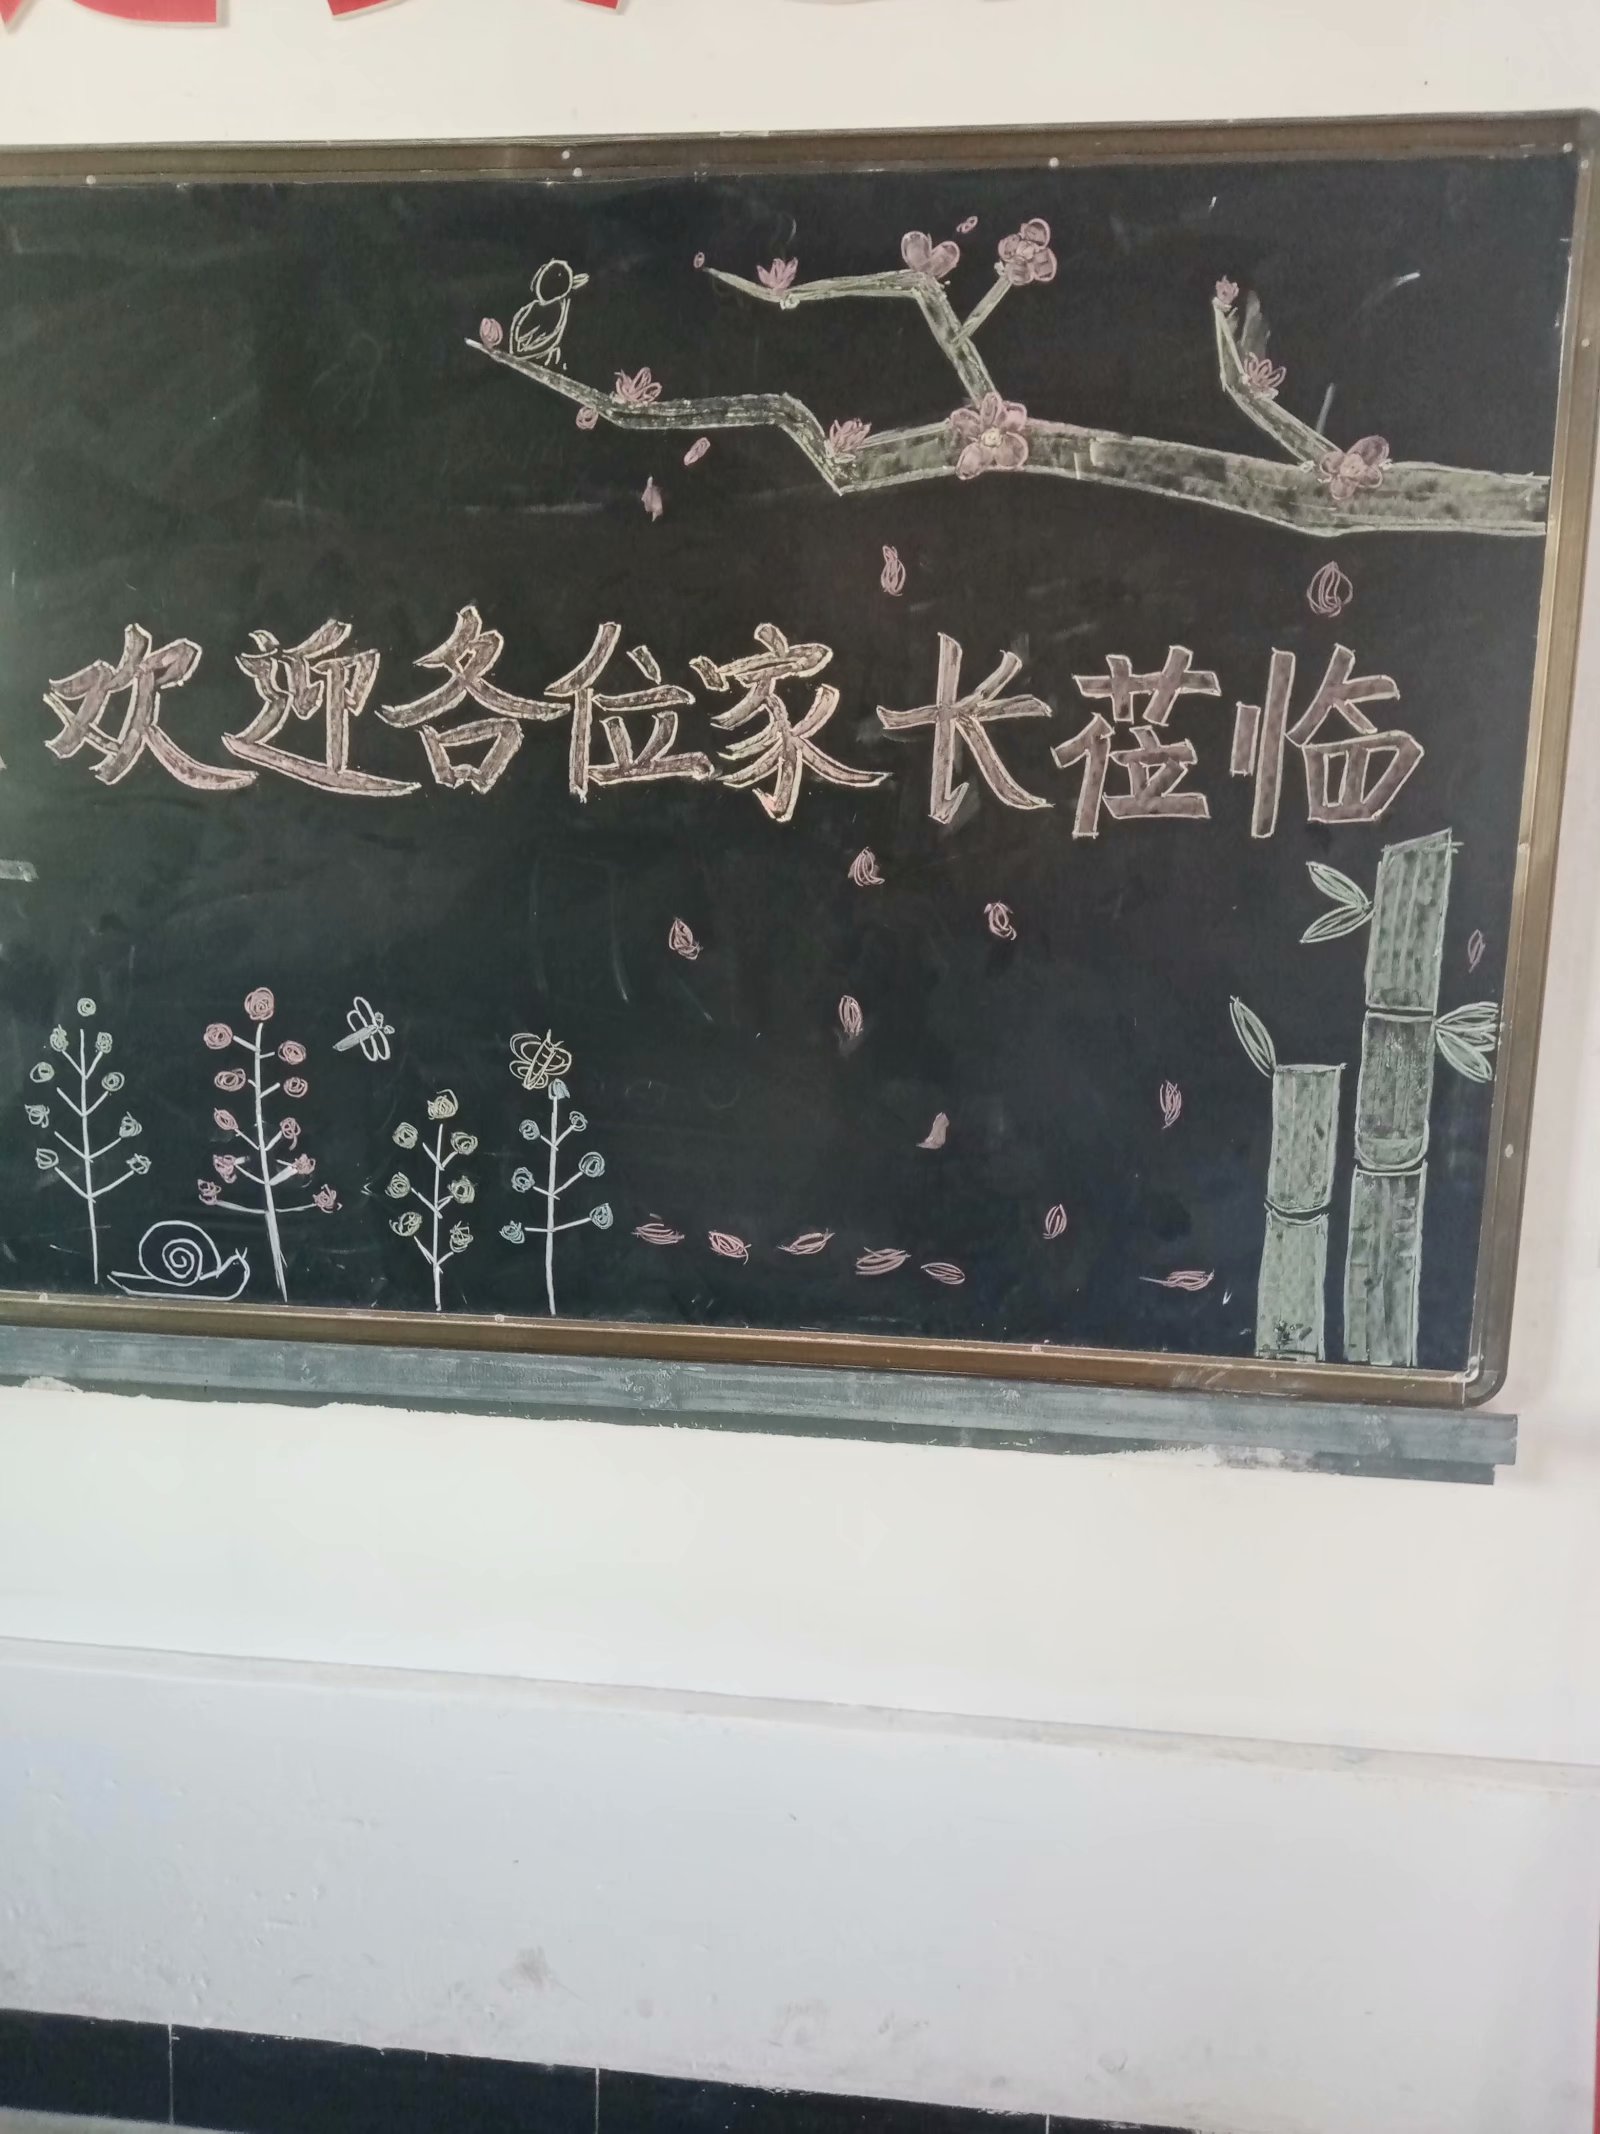 欢迎各位家长莅临